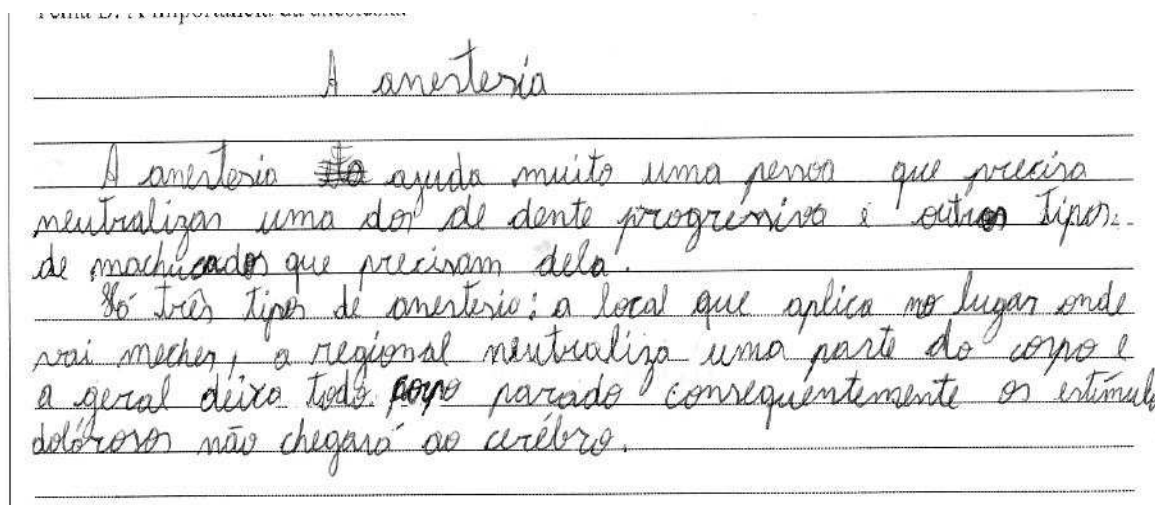 A anestesia
A anestesia ajuda muito uma pessoa que precisa
neutralizar uma dor de dente progressiva e outros tipos
de machucados que precisam dela.
Há três tipos de anestesia: a local que aplica no lugar onde
vai mecher, a regional neutraliza uma parte do corpo e
a geral deixa todo corpo parado consequentemente os estímulo
dolórosos não chegará ao cerébro.